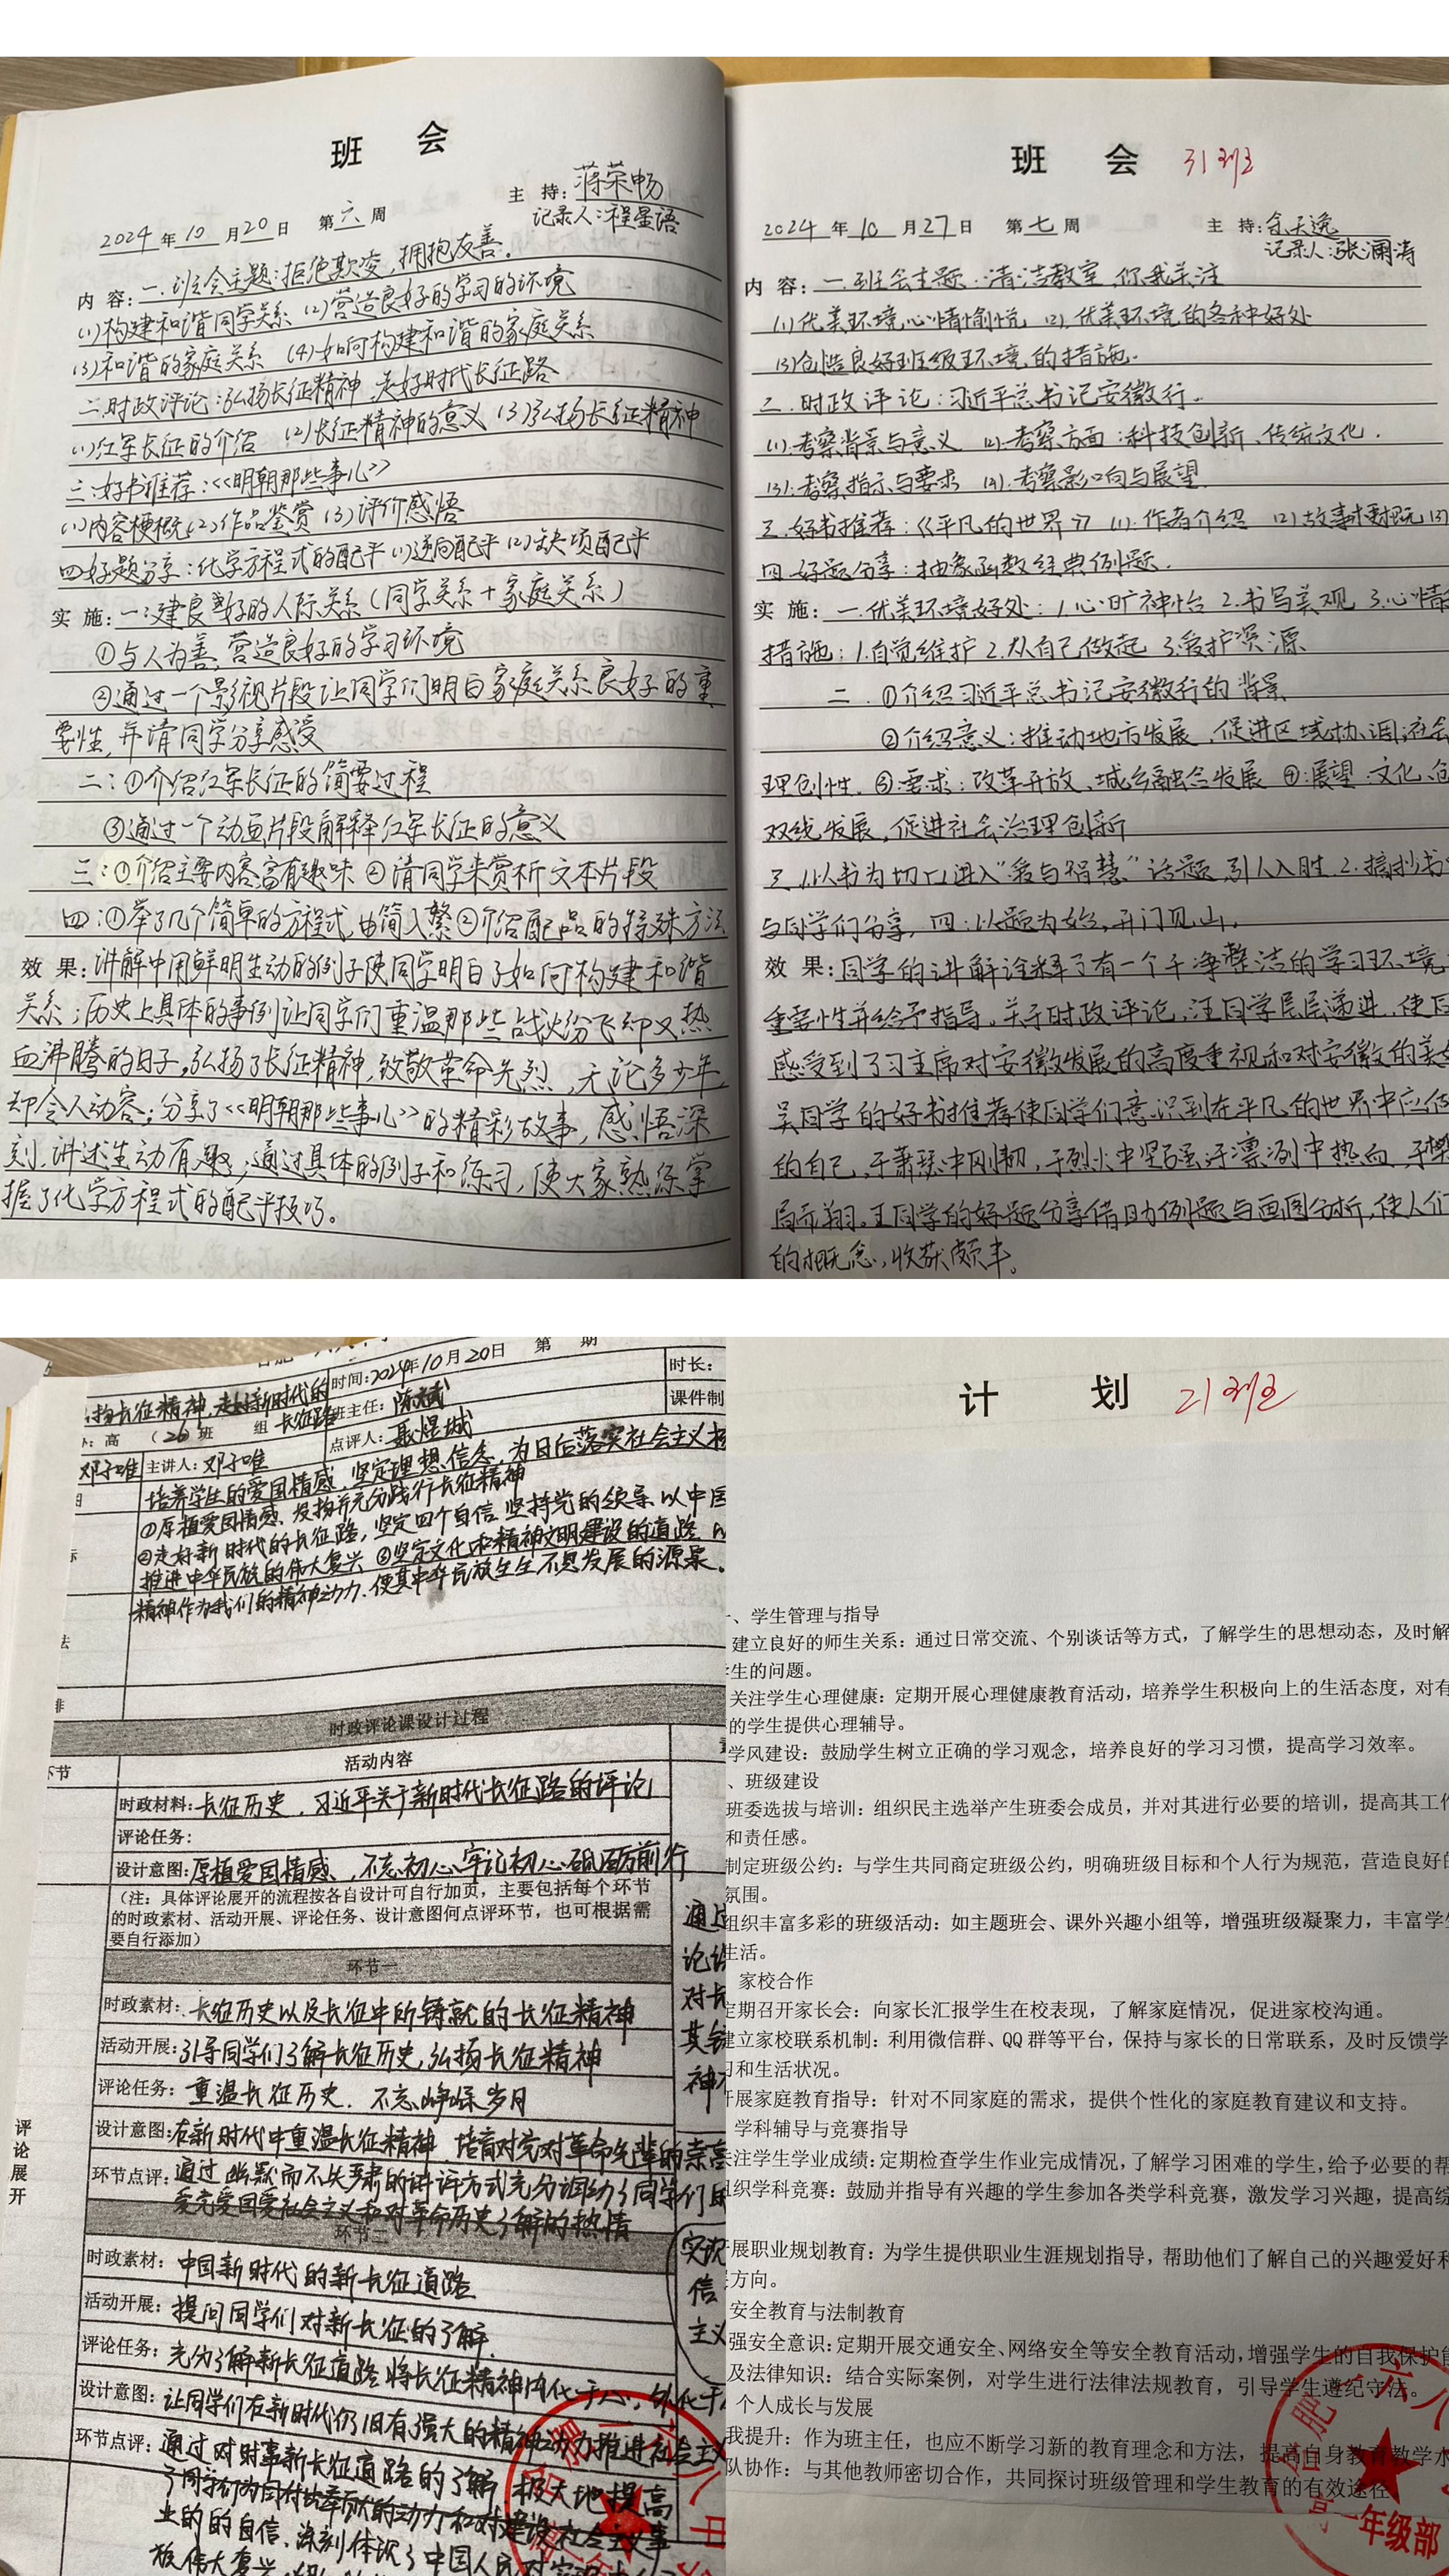 班 会
主 持: 蒋荣畅
2024 年 10 月 20 日 第 六 周
记录人:程星语
内 容: 一.班会主题:拒绝欺凌,拥抱友善.
(1)构建和谐同学关系 (2)营造良好的学习的环境
(3)和谐的家庭关系 (4)如何构建和谐的家庭关系
二.时政评论:弘扬长征精神,走好时代长征路
(1)红军长征的介绍 (2)长征精神的意义 (3)弘扬长征精神
三:好书推荐:<<明朝那些事儿>>
(1)内容梗概(2)作品鉴赏 (3)评价感悟
四.好题分享:化学方程式的配平(1)逆向配平(2)缺项配平
实 施: 一:建良好的人际关系(同学关系+家庭关系)
①与人为善,营造良好的学习环境
②通过一个影视片段让同学们明白家庭关系良好的重
要性,并请同学分享感受
二:①介绍红军长征的简要过程
③通过一个动画片段解释红军长征的意义
三:①介绍主要内容,富有趣味 ②请同学来赏析文本片段
四:①举了几个简单的方程式,由简入繁②介绍配品的特殊方法
效 果: 讲解中用鲜明生动的例子使同学明白了如何构建和谐
关系;历史上具体的事例让同学们重温那些战火纷飞却又热
血沸腾的日子,弘扬了长征精神,致敬革命先烈,无论多少年
却令人动容;分享了<<明朝那些事儿>>的精彩故事,感悟深
刻,讲述生动有趣;通过具体的例子和练习,使大家熟练掌
握了化学方程式的配平技巧。
班 会 31班
2024 年 10 月 27 日 第 七 周 主 持: 天逸
记录人:张澜涛
内 容: 一.班会主题:清洁教室,你我关注
(1)优美环境,心情愉悦 (2).优美环境的各种好处
(3)创造良好班级环境的措施.
二.时政评论:习近平总书记安徽行.
(1).考察背景与意义 (2).考察方面:科技创新、传统文化.
(3).考察指示与要求 (4).考察影响与展望.
三.好书推荐:《平凡的世界》 (1).作者介绍 (2)故事梗概 (3)
四.好题分享:抽象函数经典例题.
实 施: 一.优美环境好处:1.心旷神怡 2.书写美观 3.心情
措施:1.自觉维护 2.从自己做起 3.爱护资源
二.①介绍习近平总书记安徽行的背景
②介绍意义:推动地方发展,促进区域协调,社会
理创性. ③要求:改革开放、城乡融合发展 ④:展望:文化、
双线发展,促进社会治理创新
三.1.以书为切口,进入“爱与智慧”话题,引人入胜.2.摘抄书
与同学们分享. 四:以题为始,开门见山.
效 果: 同学的讲解诠释了有一个干净整洁的学习环境
重要性并给予指导。关于时政评论,汪同学层层递进,使
感受到了习主席对安徽发展的高度重视和对安徽文的美
吴同学的好书推荐使同学们意识到在平凡的世界中应
的自己,于萧瑟中刚韧,于烈火中坚强,于凛冽中热血,于
局而翔。王同学的好题分享借助例题与画图分析,使人们
的概念,收获颇丰。
时间:2024年10月20日 第 期
时长:
扬长征精神,走好新时代的
长征路
班主任:
课件制
高 (26)班 组
点评人:聂煜城
邓子唯 主讲人:邓子唯
培养学生的爱国情感,坚定理想信念,为日后落实社会主义
①厚植爱国情感、发扬并充分践行长征精神
②走好新时代的长征路,坚定四个自信.坚持党的领导.以中国
推进中华民族的伟大复兴 ③坚定文化和精神文明建设的道路.
精神作为我们的精神动力.使其中华民族生生不息发展的源泉。
时政评论课设计过程
活动内容
时政材料:长征历史、习近平关于新时代长征路的评论
评论任务:
设计意图:厚植爱国情感、不忘初心,牢记初心砥砺前行
(注:具体评论展开的流程按各自设计可自行加页,主要包括每个环节
的时政素材、活动开展、评论任务、设计意图何点评环节,也可根据需
要自行添加)
环节一
时政素材:长征历史以及长征中所铸就的长征精神
活动开展:引导同学们了解长征历史,弘扬长征精神
评论任务:重温长征历史. 不忘峥嵘岁月
设计意图:在新时代中重温长征精神、培育对党对革命先辈的崇高
环节点评:通过幽默而不失严肃的讲评方式充分调动了同学们的
爱党爱国爱社会主义和对革命历史了解的热情
评论展开
环节二
时政素材:中国新时代的新长征道路
活动开展:提问同学们对新长征的了解.
评论任务:充分了解新长征道路,将长征精神内化于心,外化于
设计意图:让同学们在新时代仍旧有强大的精神动力推进社会主义
环节点评:通过对时事新长征道路的了解,极大地提高
了同学们为国付出奉献的动力和对建设社会主义事
业的的自信.深刻体现了中国人民
计 划 21班
、学生管理与指导
建立良好的师生关系:通过日常交流、个别谈话等方式,了解学生的思想动态,及时解
学生的问题。
关注学生心理健康:定期开展心理健康教育活动,培养学生积极向上的生活态度,对有
的学生提供心理辅导。
学风建设:鼓励学生树立正确的学习观念,培养良好的学习习惯,提高学习效率。
、班级建设
班委选拔与培训:组织民主选举产生班委会成员,并对其进行必要的培训,提高其工作
和责任感。
制定班级公约:与学生共同商定班级公约,明确班级目标和个人行为规范,营造良好的
氛围。
组织丰富多彩的班级活动:如主题班会、课外兴趣小组等,增强班级凝聚力,丰富学生
生活。
家校合作
定期召开家长会:向家长汇报学生在校表现,了解家庭情况,促进家校沟通。
建立家校联系机制:利用微信群、QQ 群等平台,保持与家长的日常联系,及时反馈学
习和生活状况。
开展家庭教育指导:针对不同家庭的需求,提供个性化的家庭教育建议和支持。
学科辅导与竞赛指导
关注学生学业成绩:定期检查学生作业完成情况,了解学习困难的学生,给予必要的帮
组织学科竞赛:鼓励并指导有兴趣的学生参加各类学科竞赛,激发学习兴趣,提高综
开展职业规划教育:为学生提供职业生涯规划指导,帮助他们了解自己的兴趣爱好和
方向。
安全教育与法制教育
强安全意识:定期开展交通安全、网络安全等安全教育活动,增强学生的自我保护能
及法律知识:结合实际案例,对学生进行法律法规教育,引导学生遵纪守法。
个人成长与发展
我提升:作为班主任,也应不断学习新的教育理念和方法,提高自身教育教学水
队协作:与其他教师密切合作,共同探讨班级管理和学生教育的有效途径
高一年级部